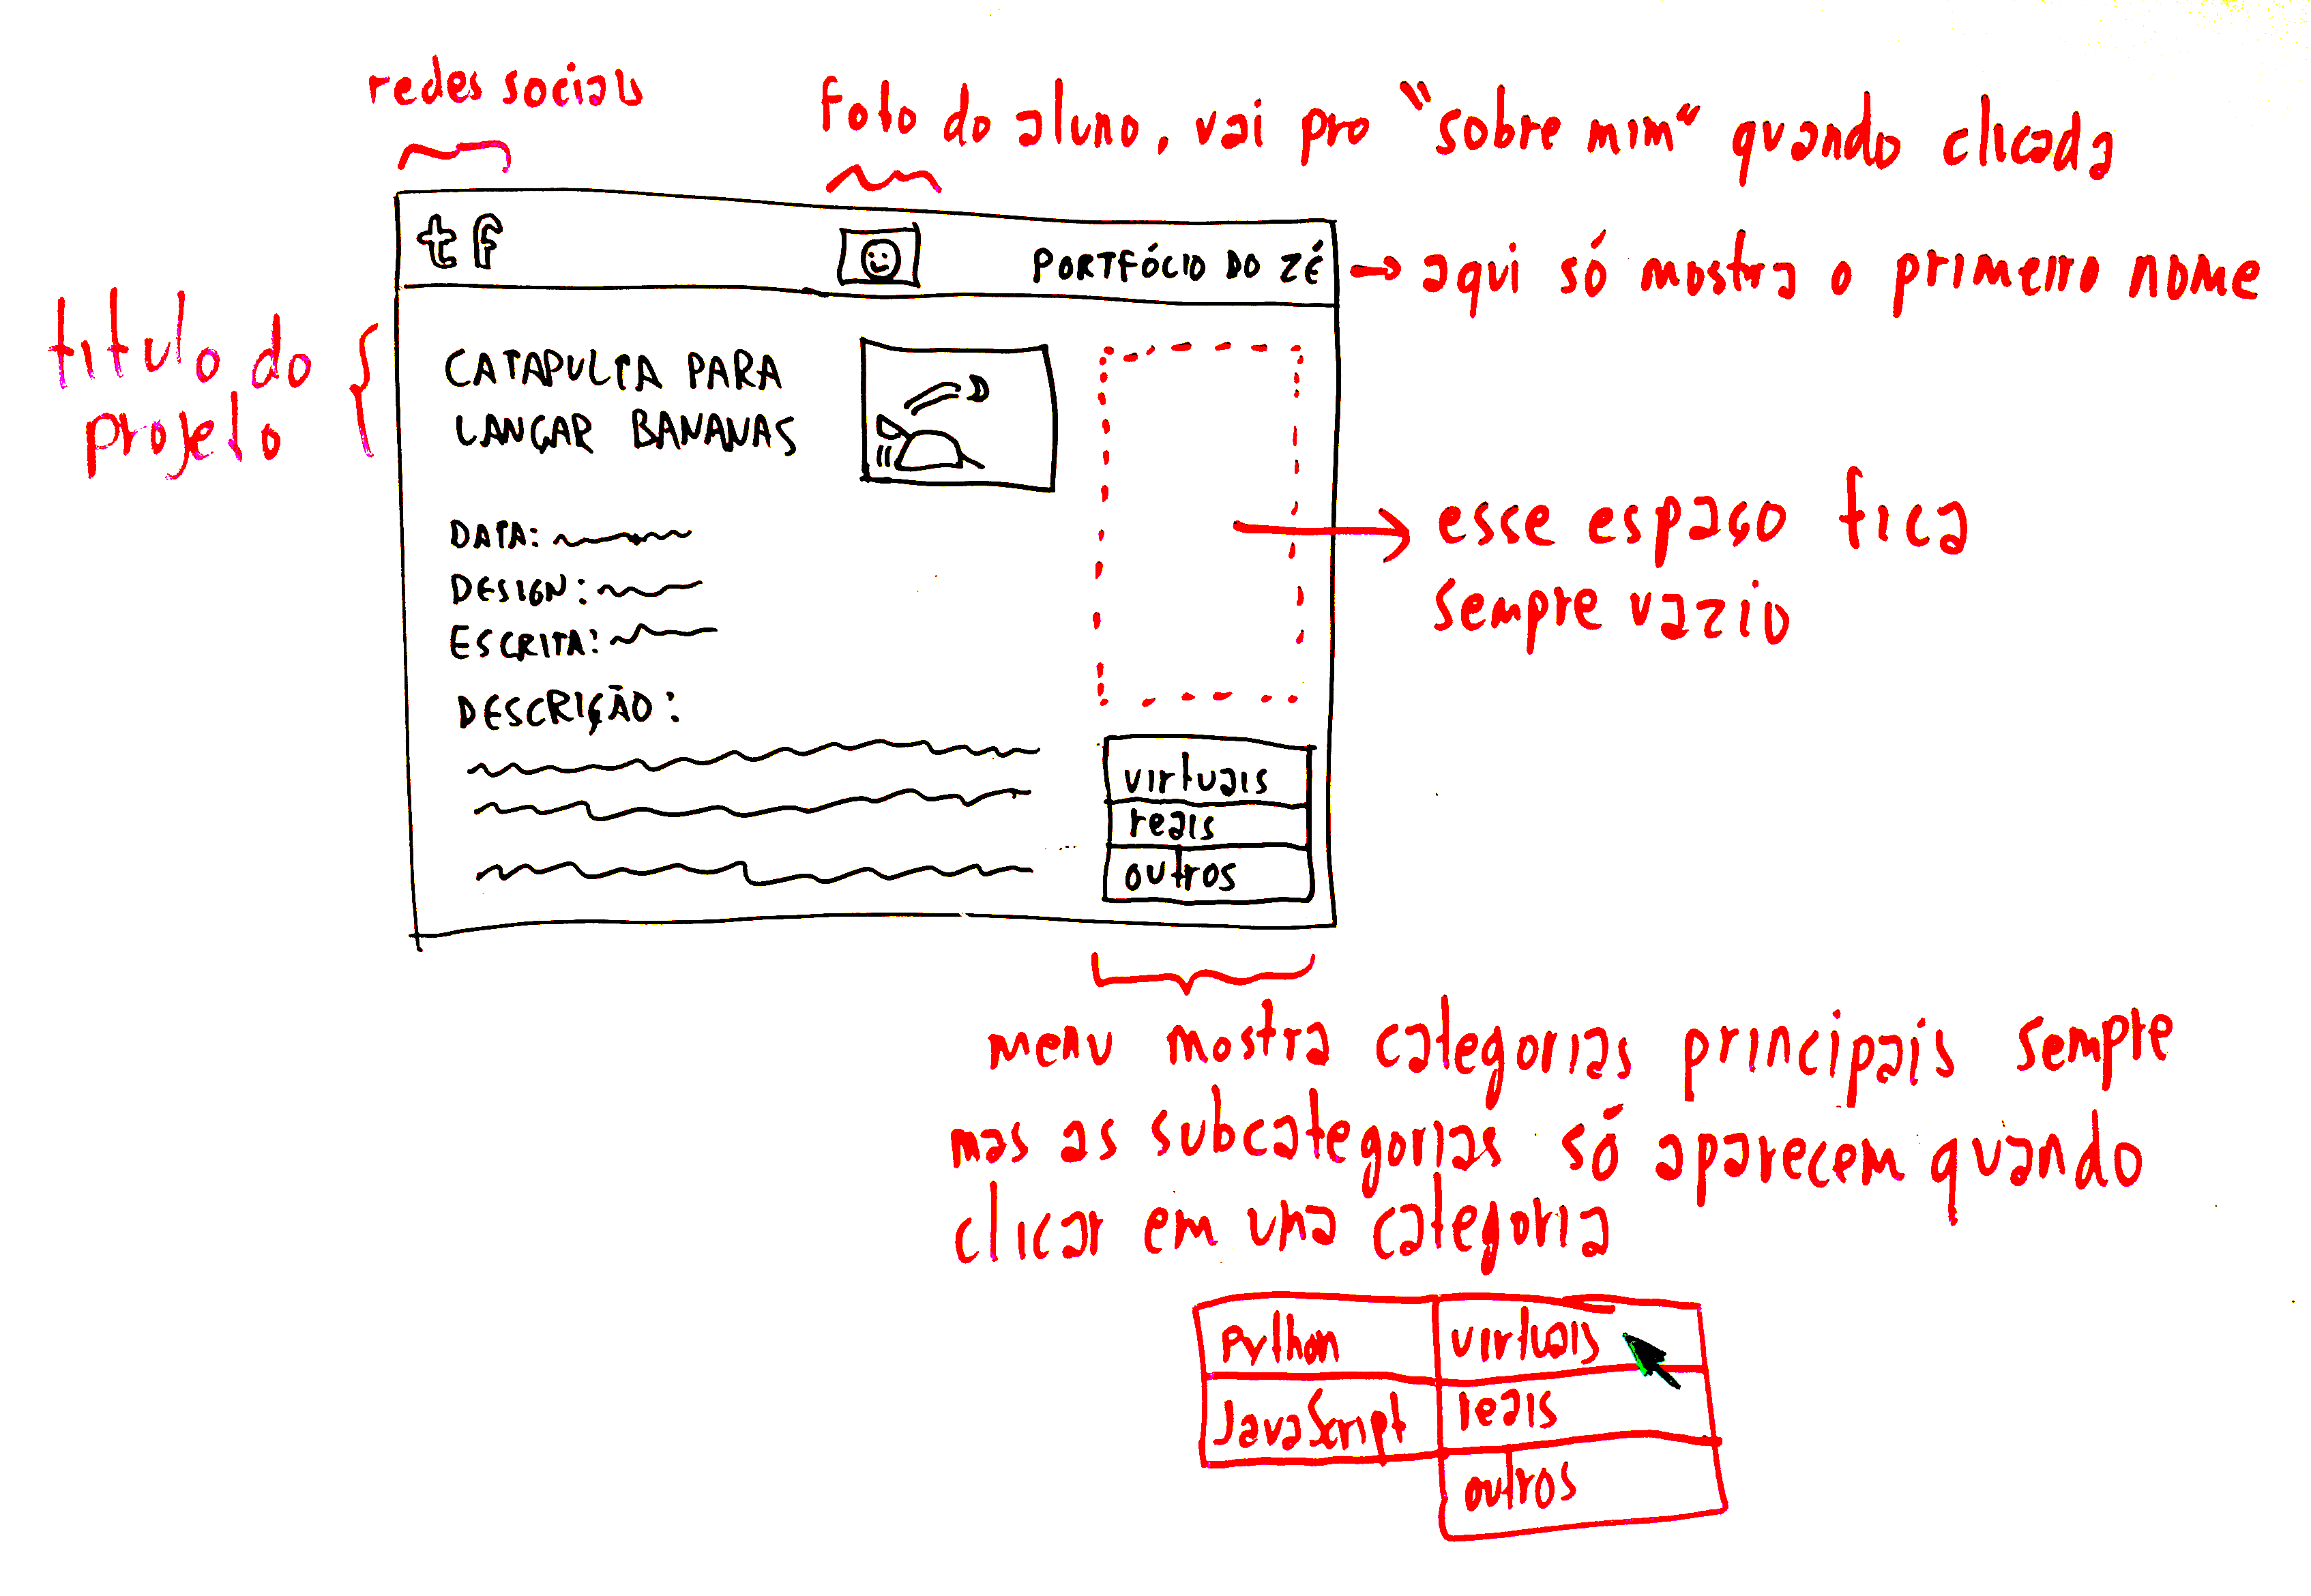 redes sociais
foto do aluno, vai pro "sobre mim" quando clicada
t f
PORTFÓCIO DO ZÉ
→ aqui só mostra o primeiro nome
titulo do
projeto
CATAPULTA PARA
LANÇAR BANANAS
DATA:
DESIGN:
ESCRITA:
DESCRIÇÃO:
esse espaço fica
sempre vazio
virtuais
reais
outros
menu mostra categorias principais sempre
mas as subcategorias só aparecem quando
clicar em uma categoria
Python
virtuais
JavaScript
reais
outros